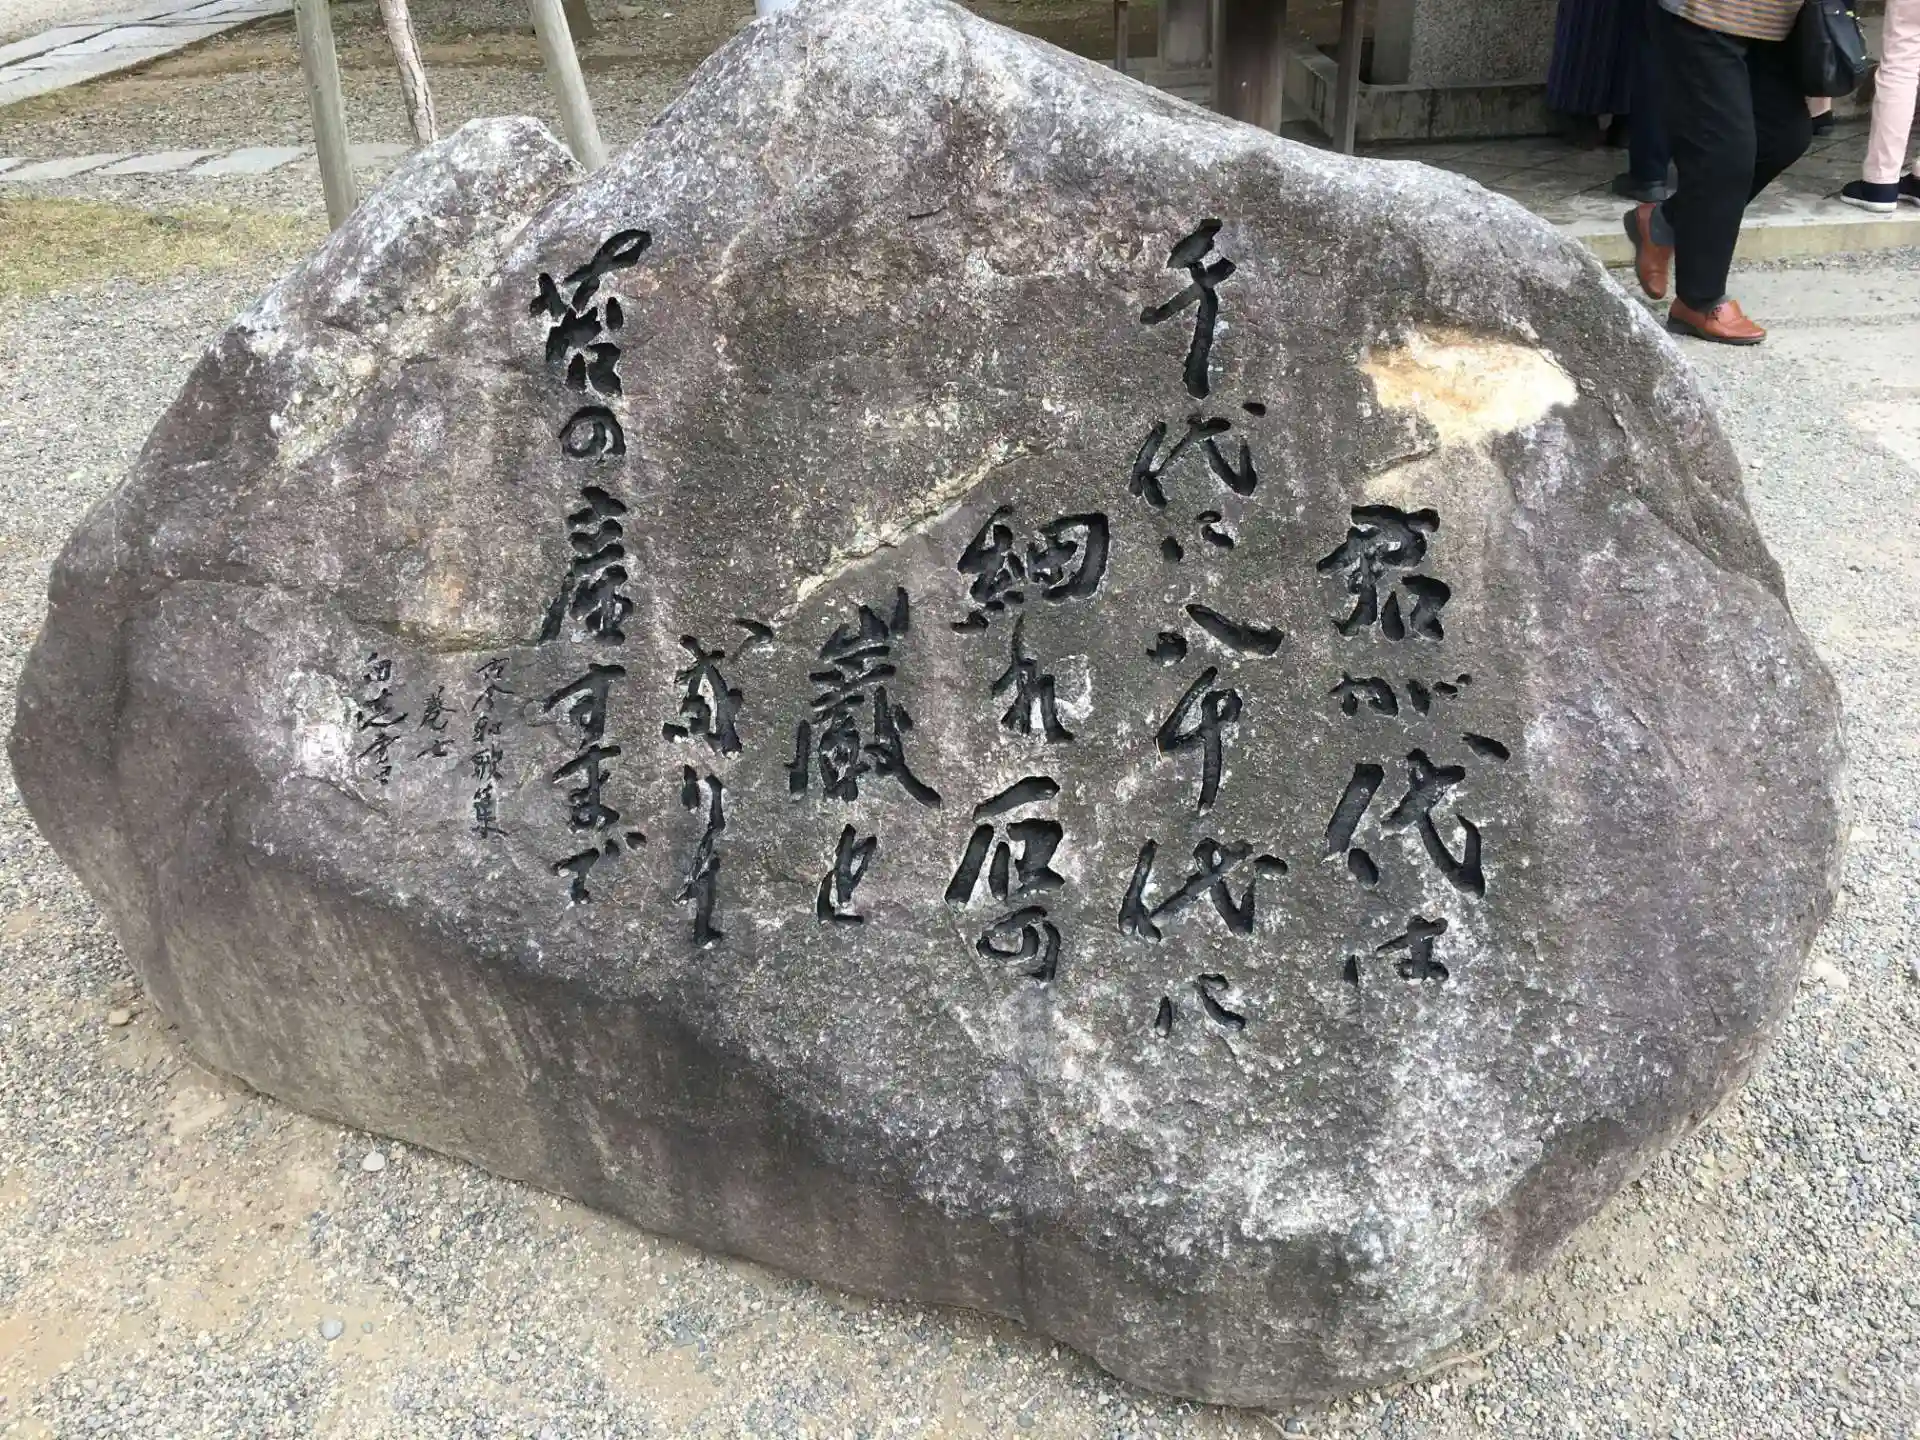 君が代は
千代に八千代に
細れ石の
巌と
成りて
苔の産すまで
古今和歌集
巻七
書